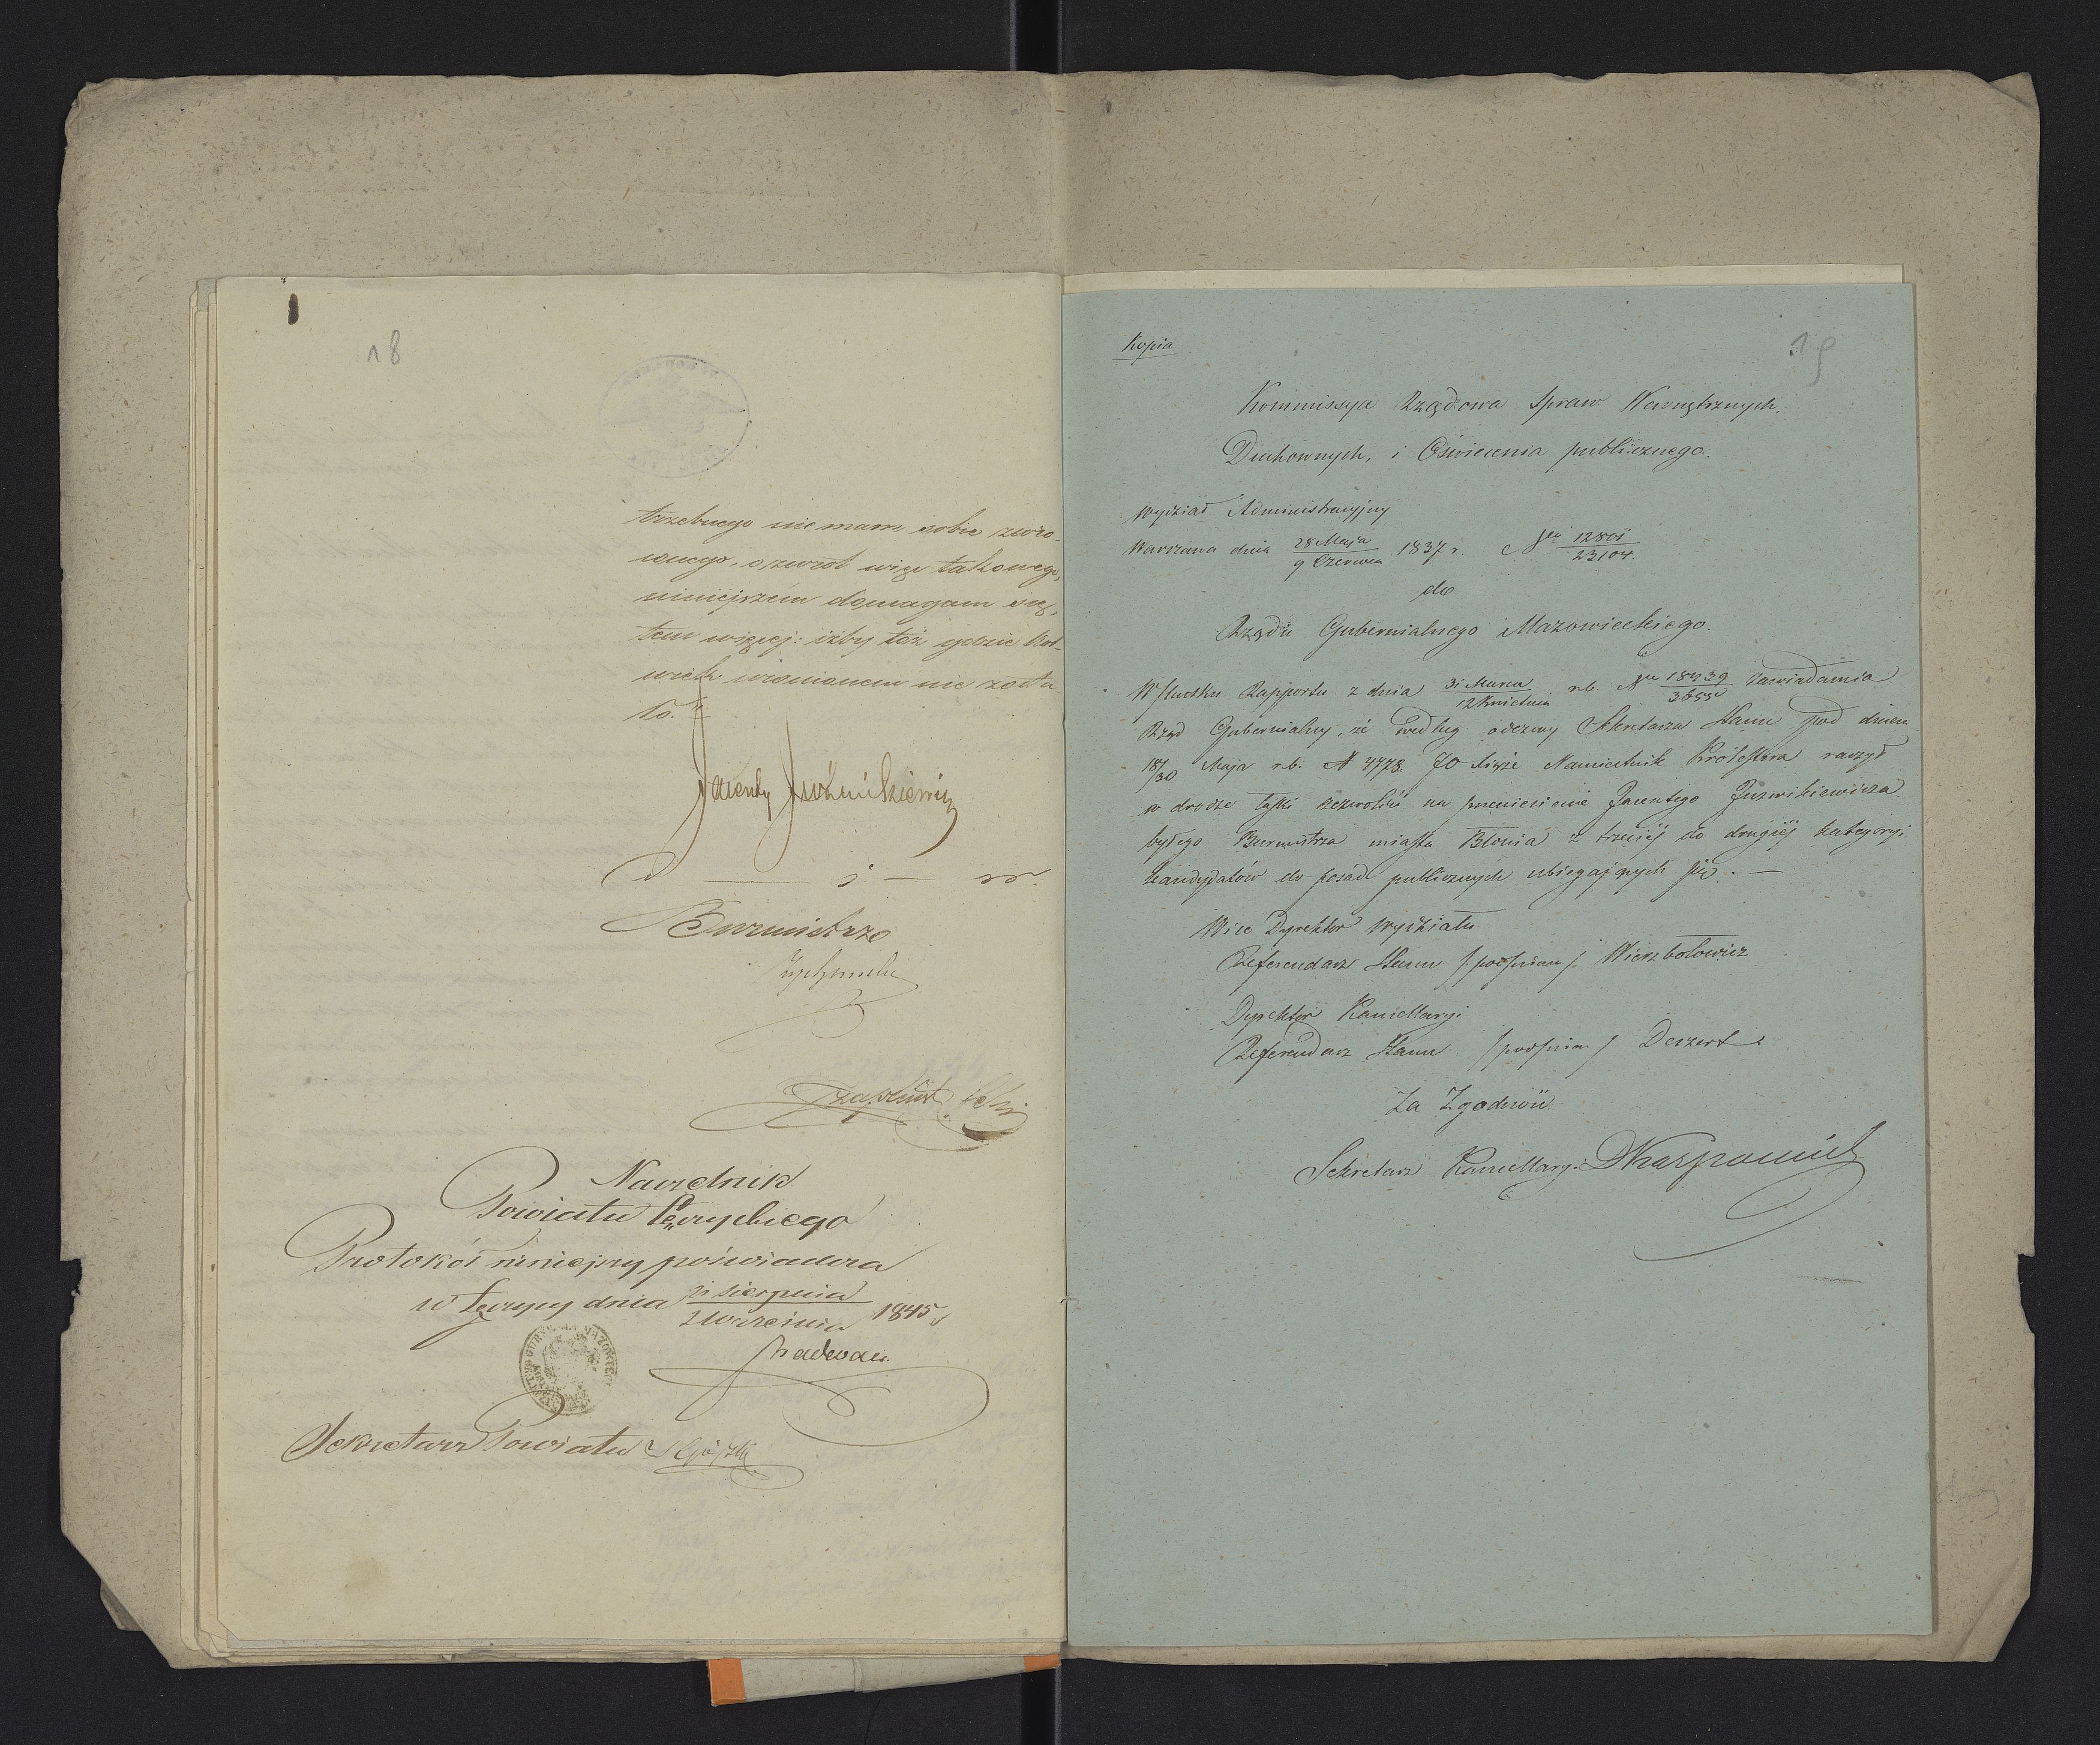 18
trzebnego nie mam sobie zwró-
conego, o zwrot więc takowego,
niniejszém domagam się,
tem więcej: iżby też gdzie kol-
wiek uronionem nie zosta
ło."
Jacenty Jóźwikiewicz
d — j — w.
Burmistrz
Naczelnik
Powiatu Łęczyckiego
Protokół niniejszy poświadcza
w Łęczycy dnia 21 sierpnia / 2 września 1845 r
Sekretarz Powiatu
Kopia
19
Kommissya Rządowa Spraw Wewnętrznych,
Duchownych, i Oświecenia publicznego.
Wydział Administracyjny
Warszawa dnia 28 Maja / 9 Czerwca 1837 r. Nro 12801 / 23104.
do
Rządu Gubernialnego Mazowieckiego.
W skutku Rapportu z dnia 31 Marca / 12 Kwietnia rb. Nro 18439 / 3655 zawiadamia
Rząd Gubernialny, że według odezwy Sekretarza Stanu pod dniem
18/30 Maja r.b. N 4778. JO Xiąże Namiestnik Królestwa raczył
w drodze łaski zezwolić na przeniesienie Jacentego Juzwikiewicza
byłego Burmistrza miasta Błonia z trzeciéj do drugiéj kategoryi
kandydatów do posad publicznych ubiegających się. —
Vice Dyrektor Wydziału
Referendarz Stanu /: podpisan :/ Wierzbołowicz
Dyrektor Kancellaryi
Referendarz Stanu / podpisan / Deszert
Za Zgodność
Sekretarz Kancellaryi